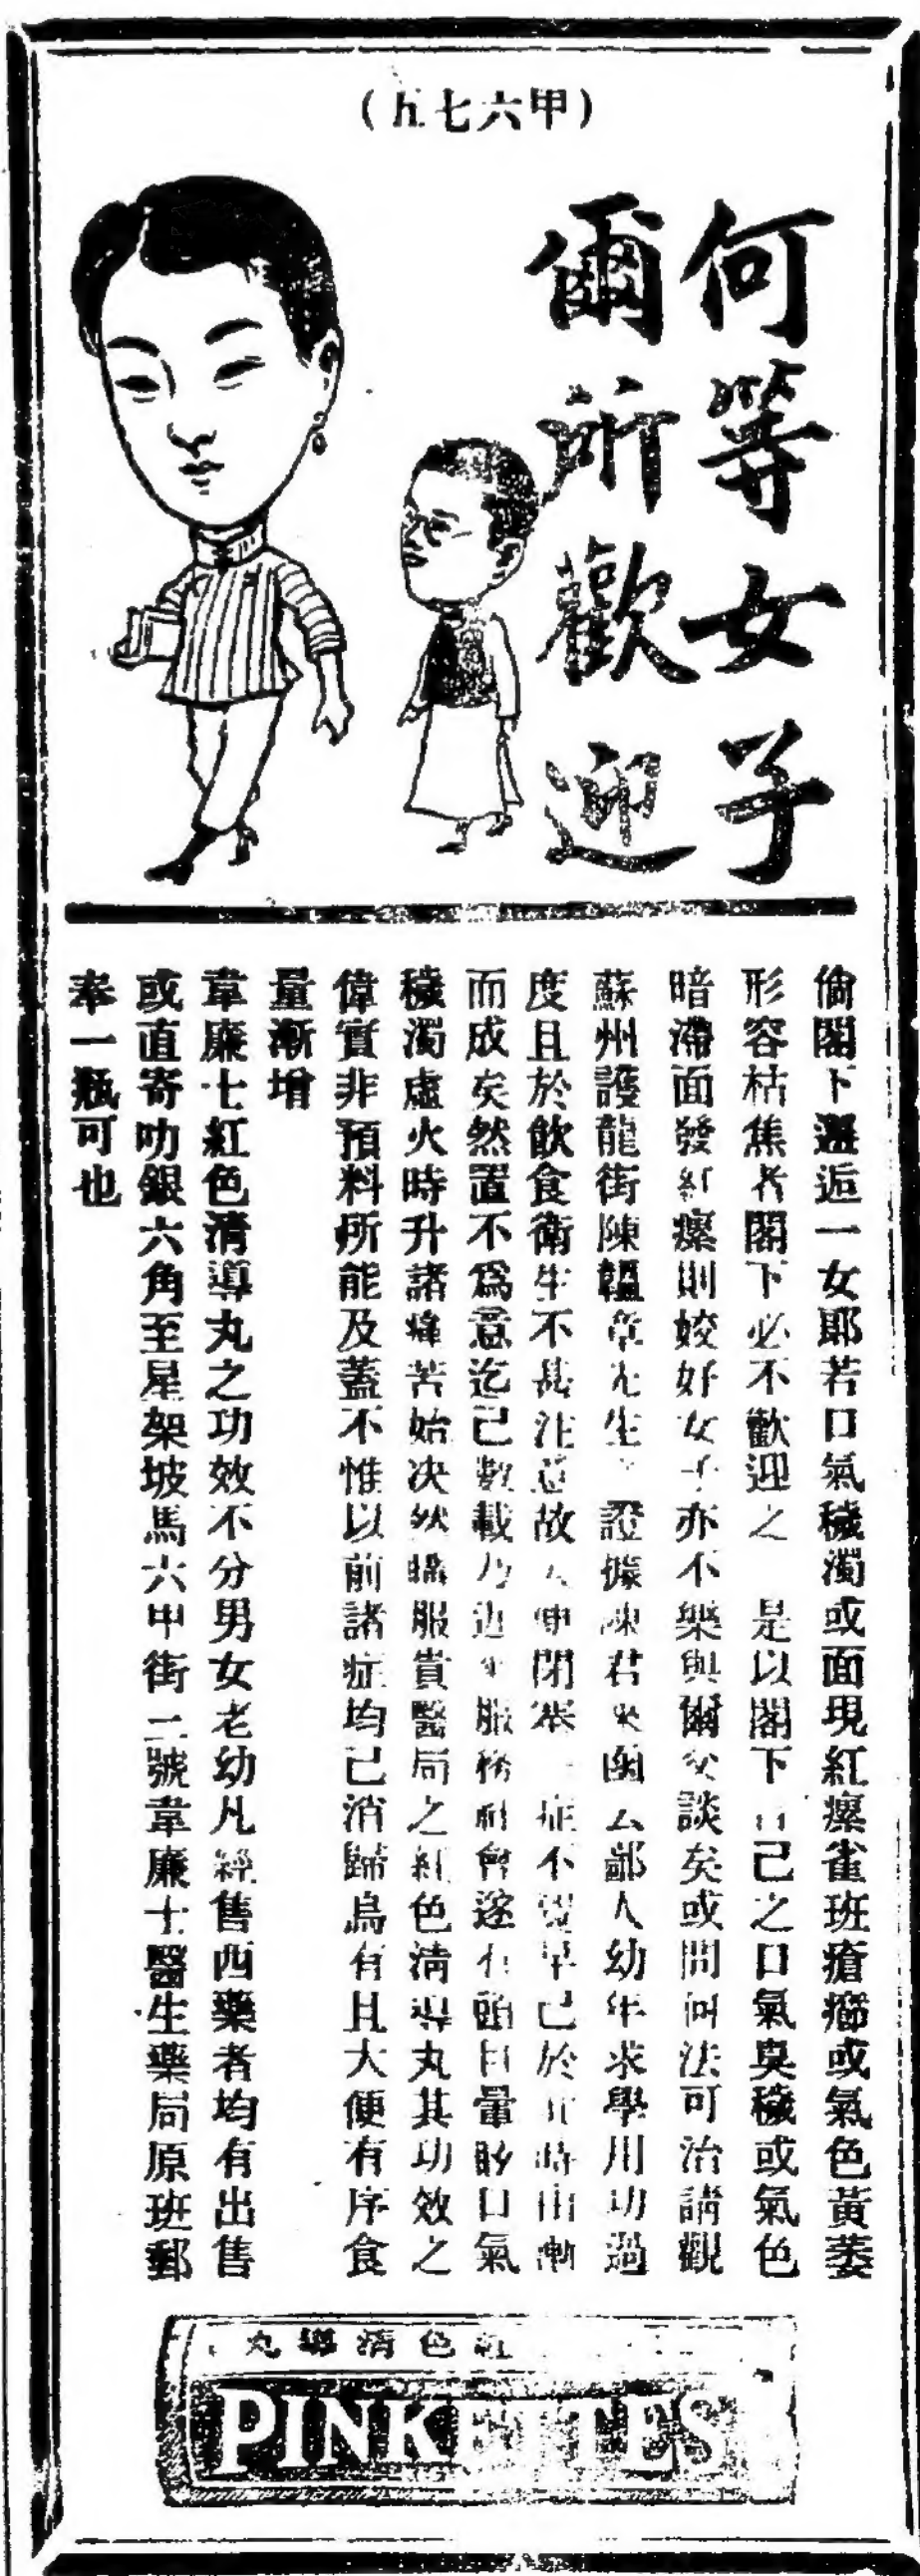 (甲六七五)
何等女子
爾所歡迎
倘閣下邂逅一女郎若口氣穢濁或面現紅瘰雀班瘡癤或氣色黃萎
形容枯焦者閣下必不歡迎之 是以閣下 己之口氣臭穢或氣色
暗滯面發紅瘰則姣好女子亦不樂與爾交談矣或問何法可治請觀
蘇州護龍街陳韞章先生之證據陳君來函云鄙人幼年求學用功過
度且於飲食衛生不甚注意故大便閉塞一症不覺早已於 時由漸
而成矣然置不爲意迄已數載乃近年服務社會遂有頭目暈眩口氣
穢濁虛火時升諸痛苦始决然購服貴醫局之紅色清導丸其功效之
偉實非預料所能及蓋不惟以前諸症均已消歸烏有且大便有序食
量漸增
韋廉士紅色清導丸之功效不分男女老幼凡經售西藥者均有出售
或直寄叻銀六角至星架坡馬六甲街二號韋廉士醫生藥局原班郵
奉一瓶可也
紅色清導丸
PINKETTES